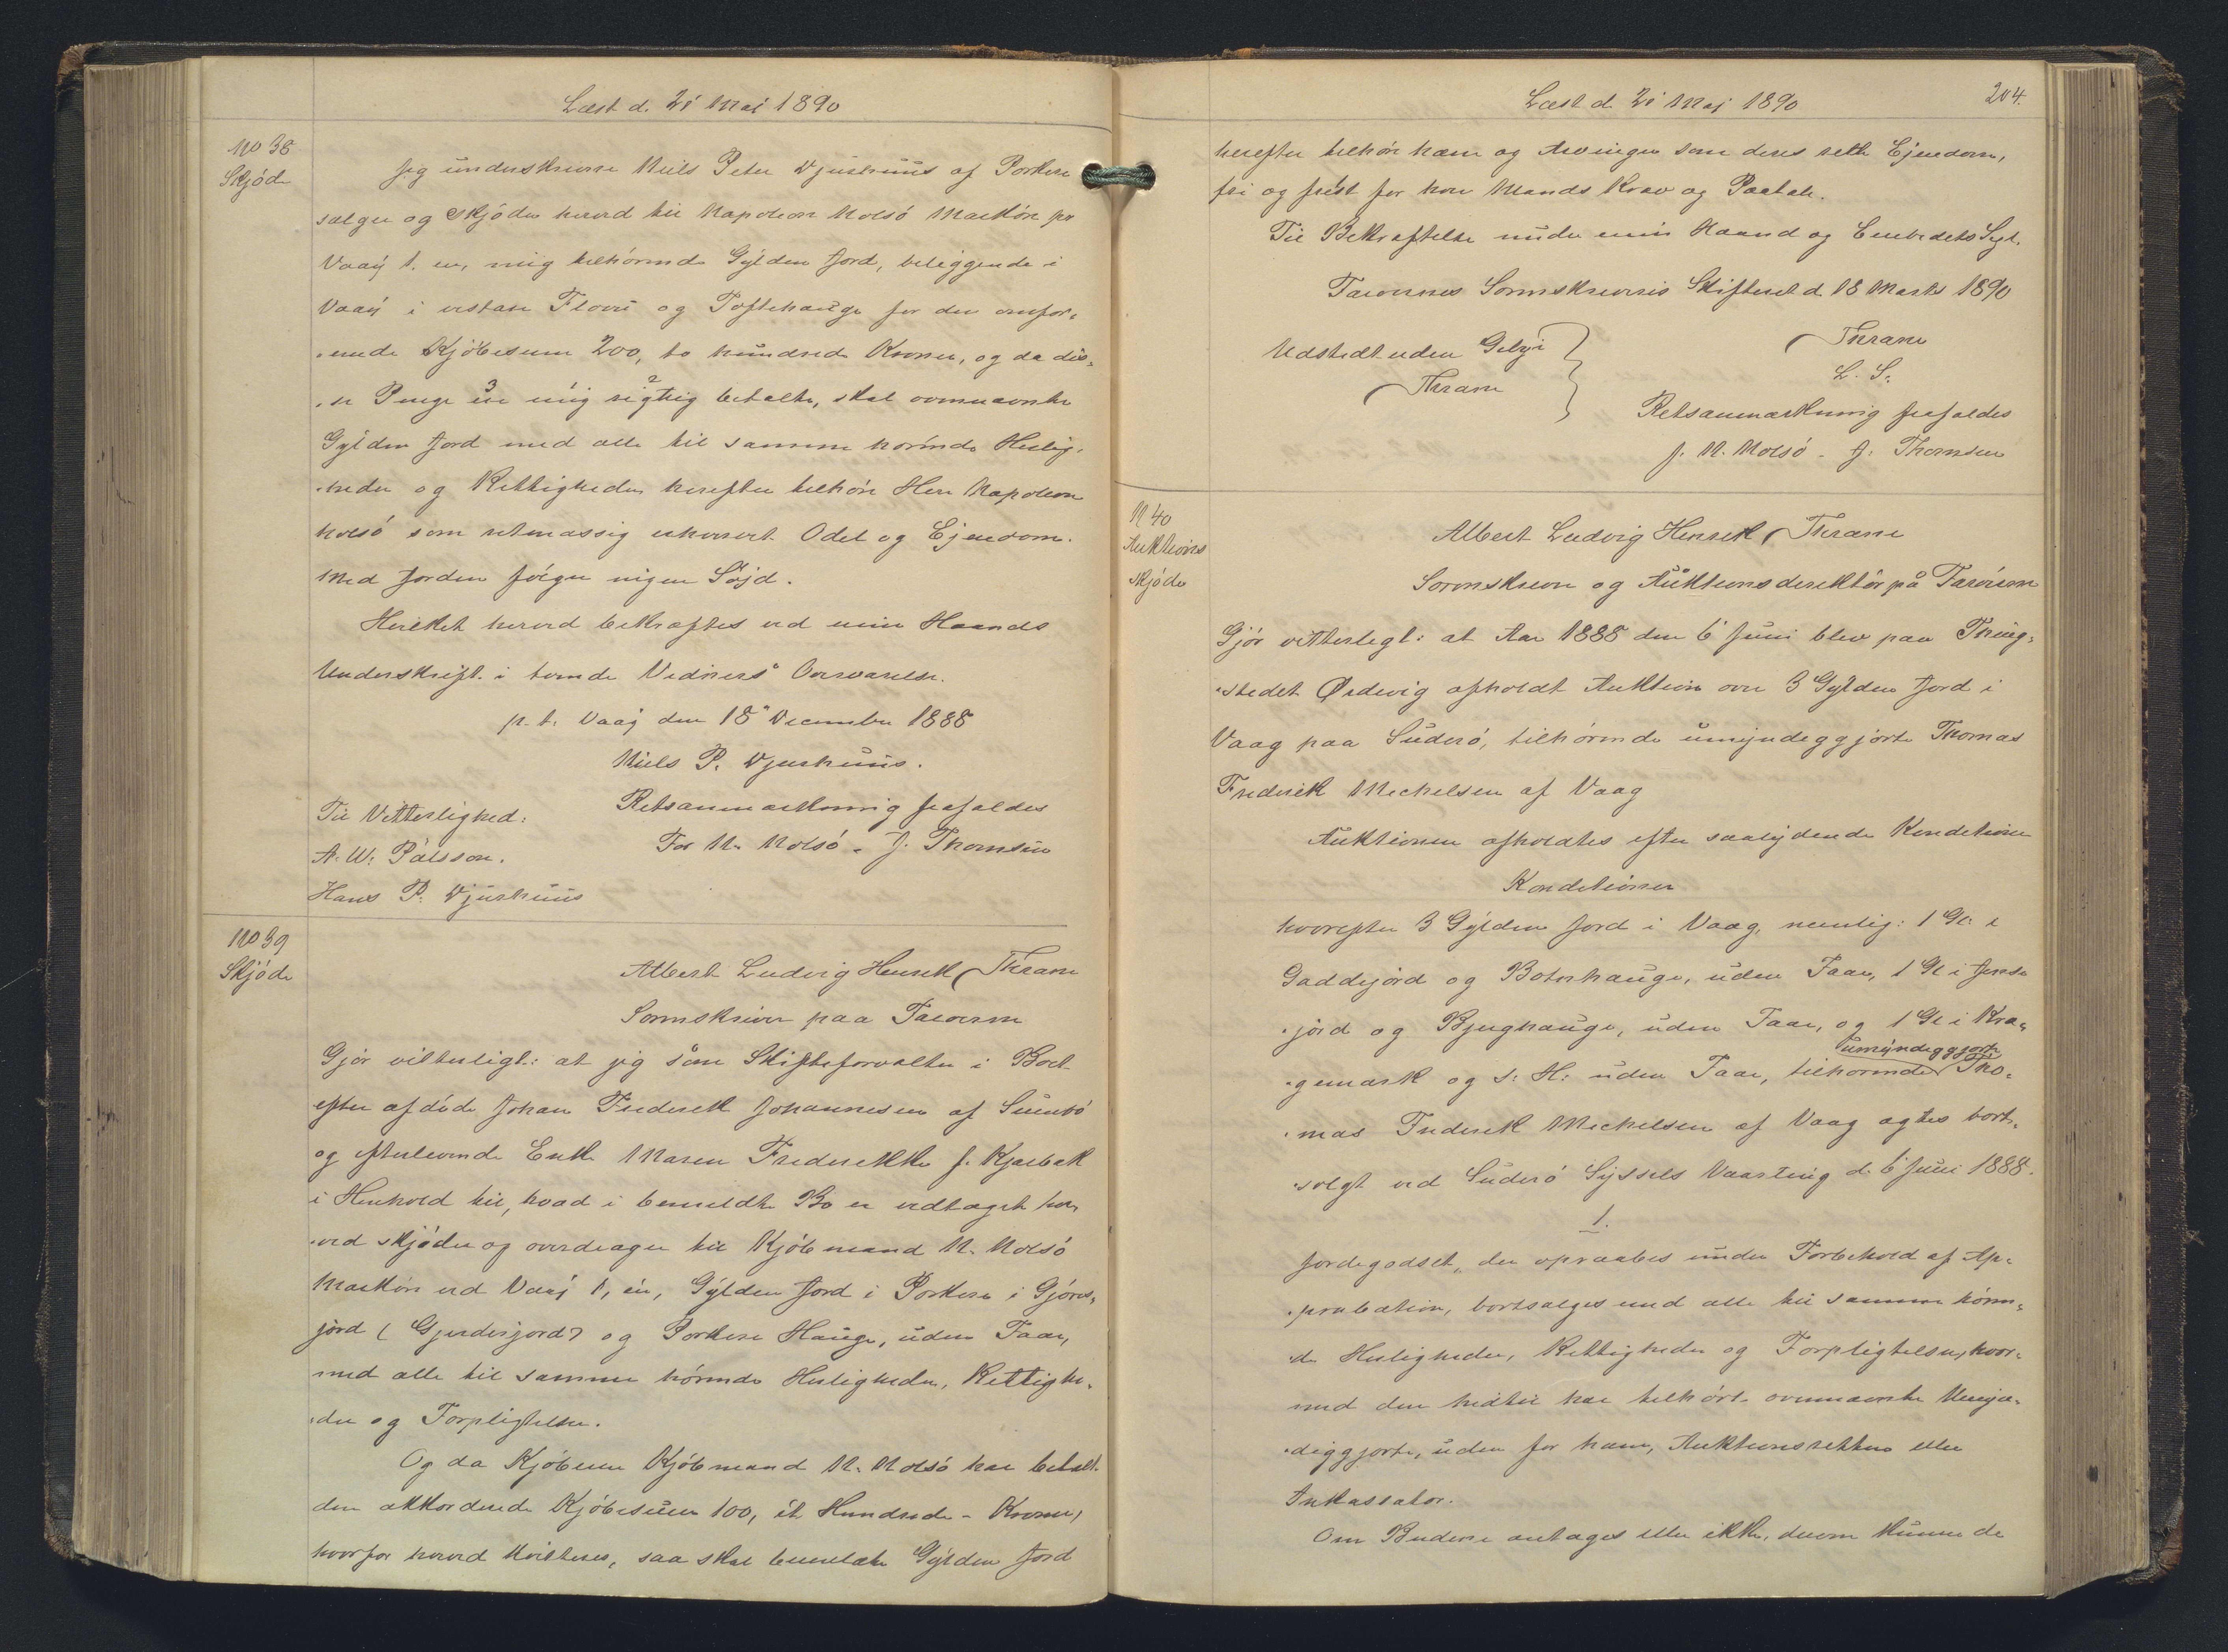 Læst d. 21 Mai 1890
No 38
Skjöde
Jeg underskrevne Niels Peter Djurhuus af Porkere
sælger og skjöder herved til Napoleon Nolsö Markön pr
Vaag 1. en, mig tilhörende Gylden Jord, beliggende i
Vaag i vestare Flovu og Toftehauge for den omfor-
-enede Kjöbesum 200, to hundrede Kroner, og da dis-
-se Penge 3 ere mig rigtig 2 betalte, skal ovennævnte
Gylden Jord med alle til samme hörende Herlig-
-heder og Rettigheder herefter tilhöre Herr Napoleon
Nolsö som retmæssig erhvervet Odel og Ejendom.
Med Jorden fölger ingen Söjd.
Hvilket herved bekræftes ved min Haands
Underskrift i tvende Vidners Overværelse.
p. t. Vaag den 18 December 1888
Niels P. Djurhuus.
Til Vitterlighed:
A. W. Pálsson.
Hans P. Djurhuus
Retsanmærkning frafaldes
For N. Nolsö - J. Thomsen
No 39
Skjöde
Albert Ludvig Henrik Thrane
Sorenskriver paa Færöerne
Gjör vitterligt: at jeg som Skifteforvalter i Boet
efter afdöde Johan Frederik Johannesen af Sumbö
og efterlevende Enke Maren Frederikke f. Kjærbæk
i Henhold til, hvad i bemeldte Bo er vedtaget her-
-ved skjöder og overdrager til Kjöbmand N. Nolsö
Markön ved Vaag 1, én, Gylden Jord i Porkere i Gjöres-
jörd (Gjerdisjord) og Porkere Hauge, uden Faar,
med alle til samme hörende Herligheder, Rettighe-
-der og Forpligtelser.
Og da Kjöberen Kjöbmand N. Nolsö har betalt
den akkorderede Kjöbesum 100, ét Hundrede - Kroner,
hvorfor herved kvitteres, saa skal bemeldte Gylden Jord
Læst d. 21 Maj 1890
204.
herefter tilhöre ham og Arvinger som deres rette Ejendom,
fri og frelst for hver Mands Krav og Paatale.
Til Bekræftelse under min Haand og Embedets Segl.
Færöernes Sorenskriveris Skifteret d. 18 Marts 1890
Udstedt uden Gebyr
Thrane
Thrane
L. S.
Retsanmærkning frafaldes
f. N. Nolsö - J. Thomsen
N 40
Auktions
skjöde
Albert Ludvig Henrik Thrane
Sorenskriver og Auktionsdirektör på Færöerne
Gjör vitterlegt: at Aar 1888 den 6 Juni blev paa Thing-
-stedet Ørdevig afholdt Auktion over 3 Gylden Jord i
Vaag paa Suderö, tilhörende umyndiggjorte Thomas
Frederik Mickelsen af Vaag
Auktionen afholdtes efter saalydende Konditioner
Konditioner
hvorefter 3 Gylden Jord i Vaag, nemlig: 1 Gl. i
Gaddejörd og Botnhauge, uden Faar, 1 Gl i Jens-
-jörd og Bjerghauge, uden Faar, og 1 Gl i Kra-
-gemark og s. H. uden Faar, tilhörende umyndiggjorte Tho-
-mas Frederik Mickelsen af Vaag agtes bort-
-solgt ved Suderö Syssels Vaarting d. 6 Juni 1888.
1.
Jordegodset, der opraabes under Forbehold af Ap-
-probation, bortsælges med alle til samme hören-
-de Herligheder, Rettigheder og Forpligtelser, hvor-
med den hidtil har tilhört ovennævnte Umyn-
-diggjorte, uden for ham, Auktionsretten eller
Inkassator.
Om Budene antages eller ikke, derom kunne de